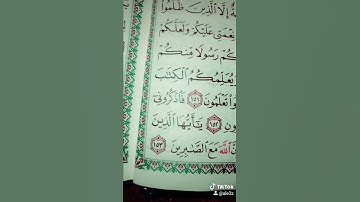 ةٌ إِلَّا ٱلَّذِينَ ظَلَمُوا۟
نِعْمَتِى عَلَيْكُمْ وَلَعَلَّكُمْ
كُمْ رَسُولًا مِّنكُمْ
يُعَلِّمُكُمُ ٱلْكِتَٰبَ
وا۟ تَعْلَمُونَ ١٥١ فَٱذْكُرُونِىٓ
ونِ ١٥٢ يَٰٓأَيُّهَا ٱلَّذِينَ
نَّ ٱللَّهَ مَعَ ٱلصَّٰبِرِينَ ١٥٣
TikTok